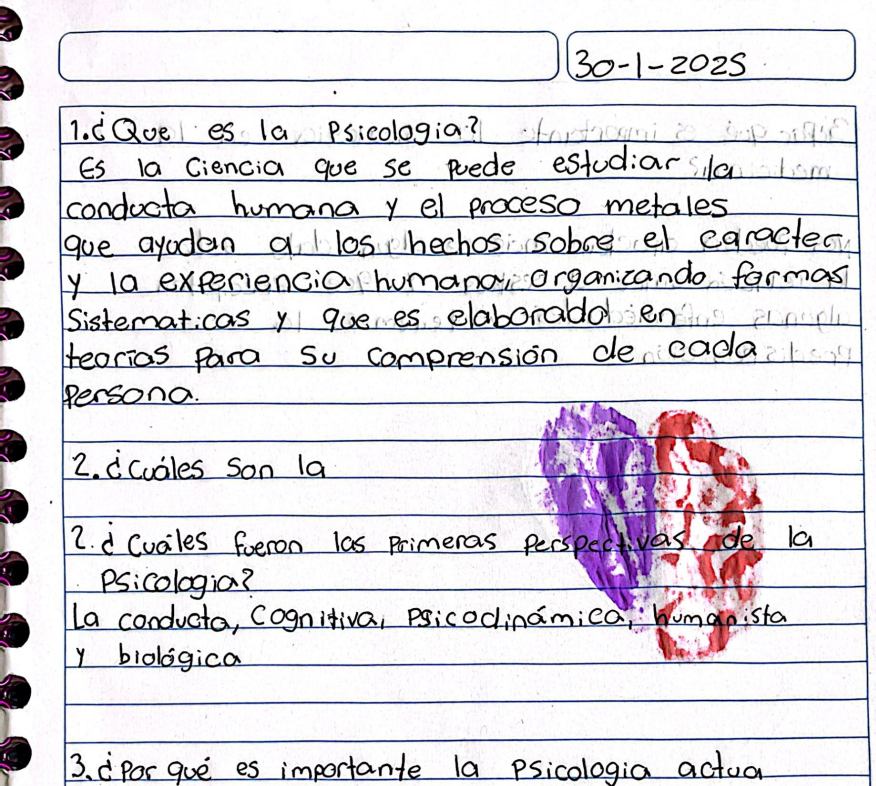 30-1-2025
1. ¿Que es la Psicologia?
Es la Ciencia que se puede estudiar la
conducta humana y el proceso metales
que ayudan a los hechos sobre el caracter
y la experiencia humana, organizando formas
Sistematicas y que es elaborado en
teorias Para su comprensión de cada
Persona.
2. ¿Cuáles Son la
2. ¿Cuáles fueron las Primeras Perspectivas de la
Psicologia?
La conducta, Cognitiva, Psicodinámica, humanista
y biológica
3. ¿Por qué es importante la Psicologia actua